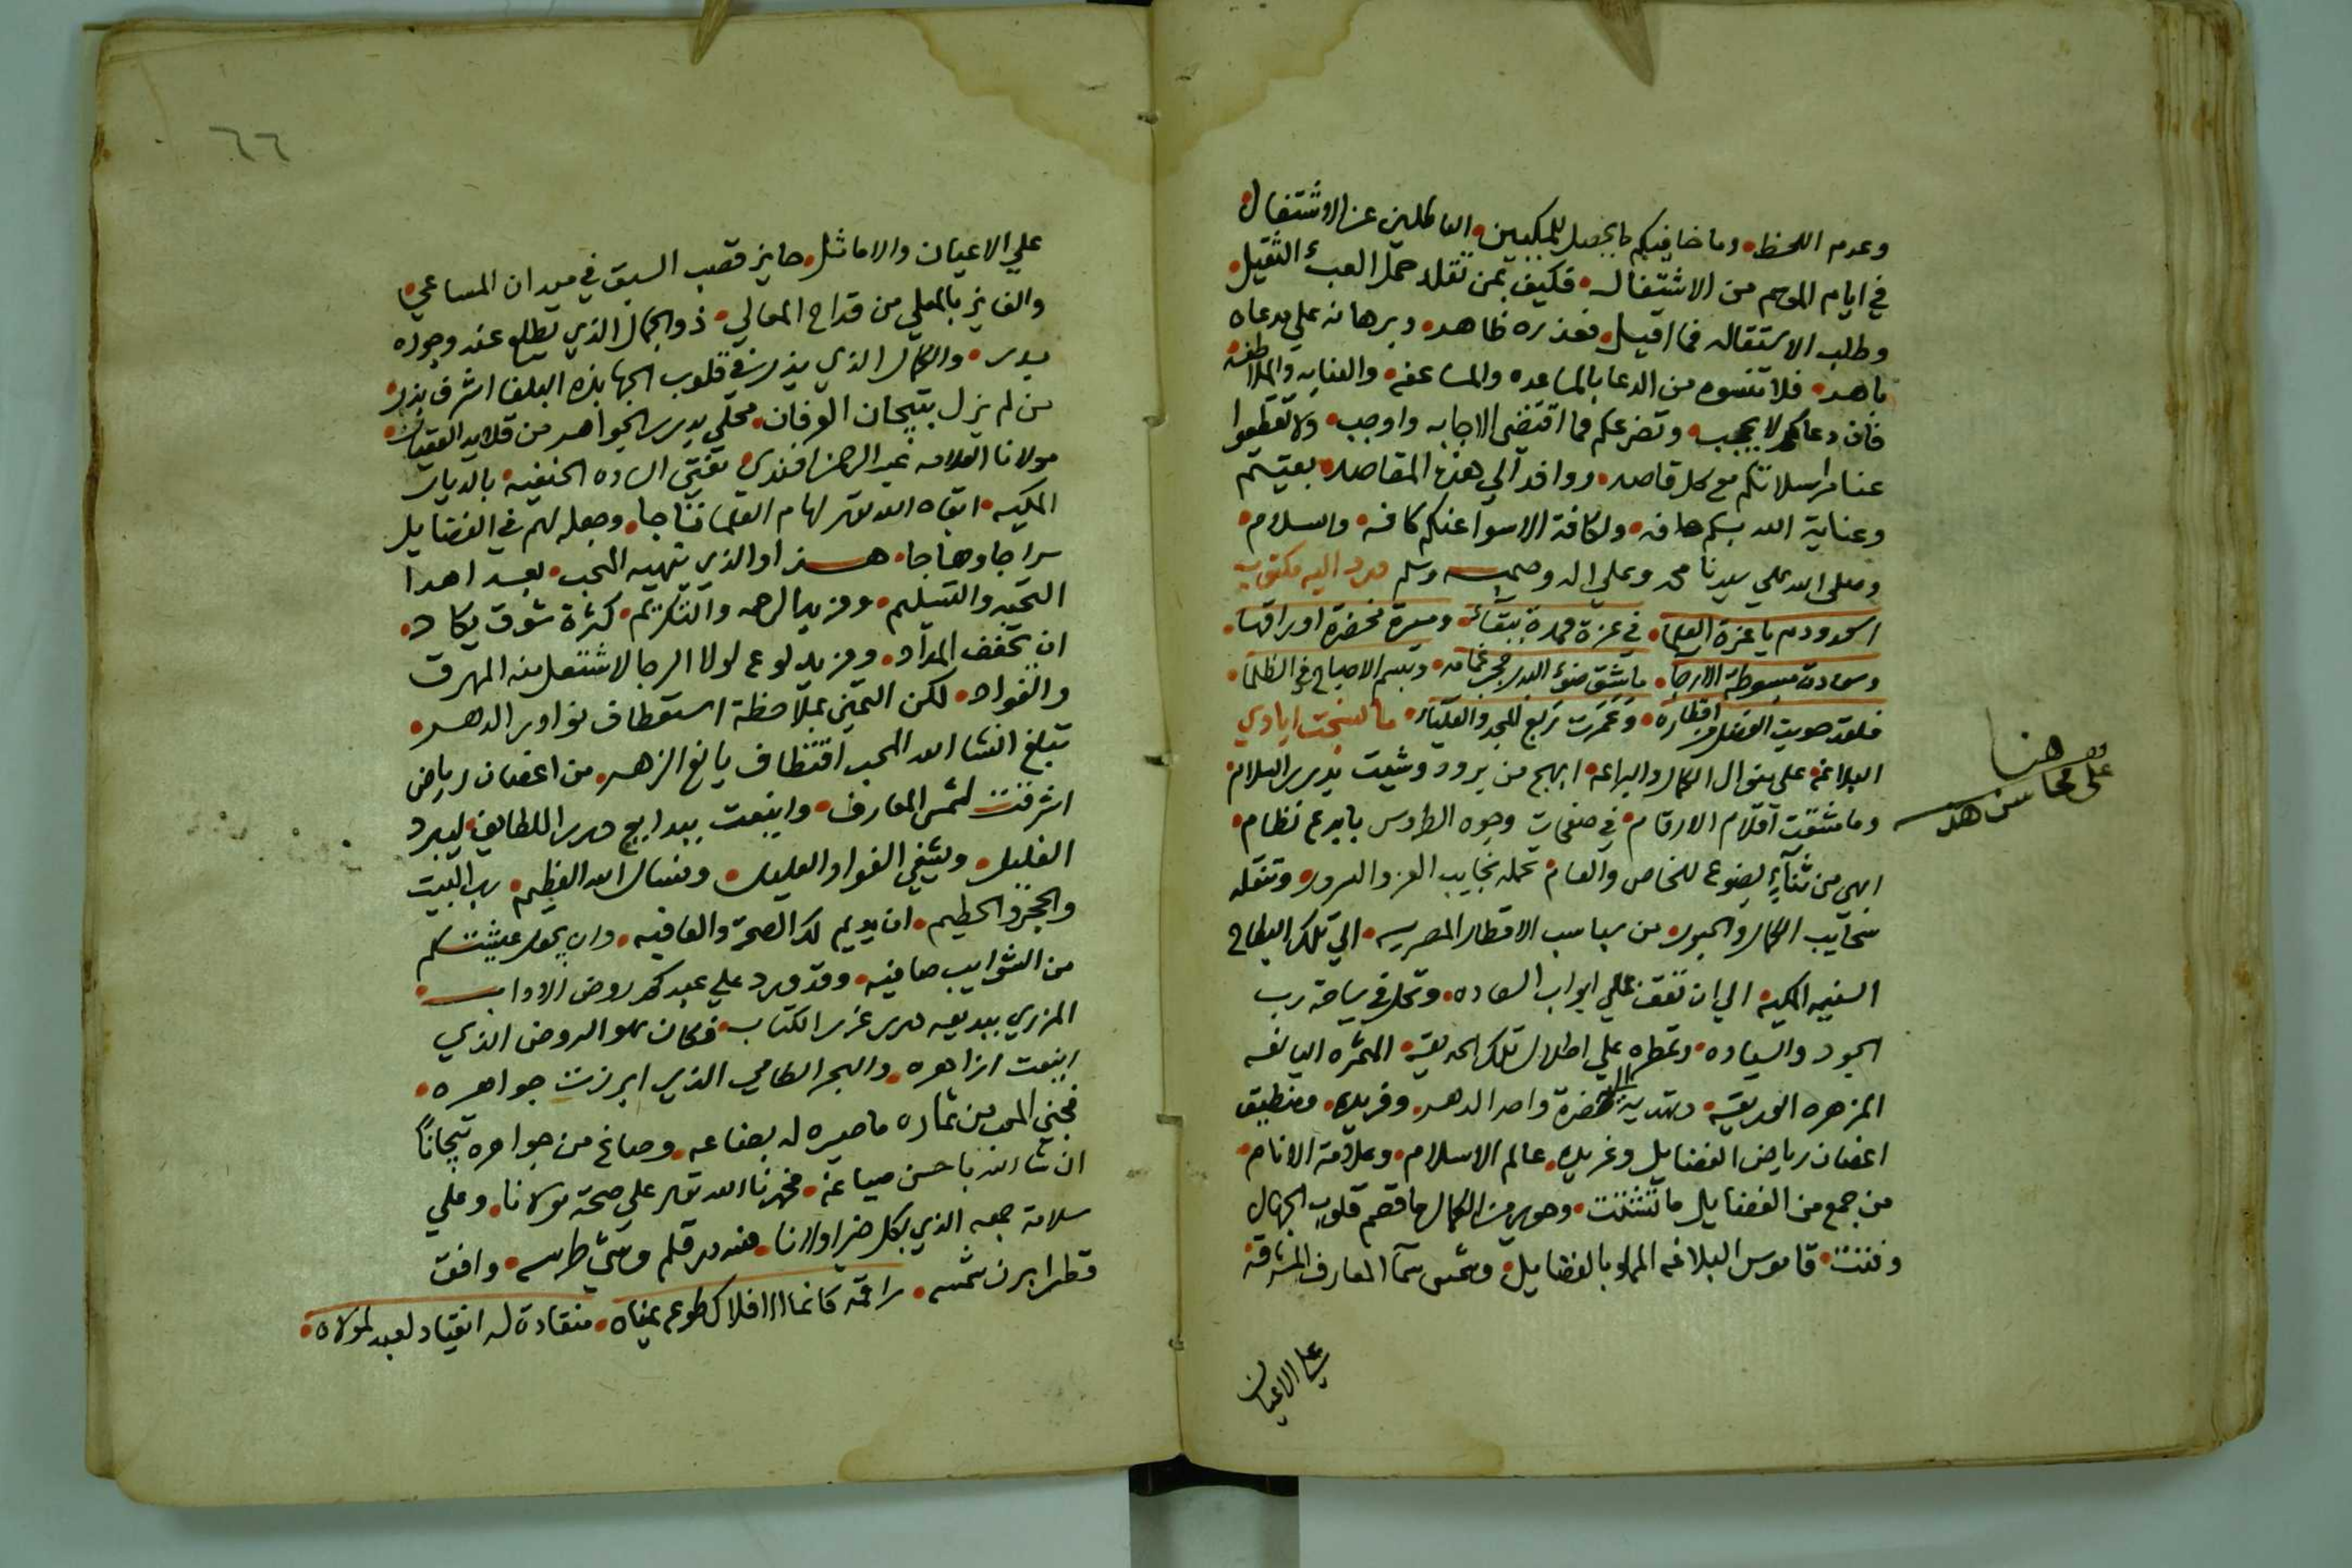 وعدم اللحظ، وما خافيكم ما يحصل للمكيين، العاطلين عن الاشتغال
في ايام الموسم من الاشتغال، فكيف بمن تقلد حمل العبء الثقيل،
وطلب الاستقاله فما اقيل، فعذره ظاهر، وبرهانه علي مدعاه
باهر، فلا تنسوه من الدعا بالمساعده والمساعفه، والعنايه والملاطفة،
فان دعاكم لا يحجب، وتضرعكم مما اقتضي الاجابه واوجب، ولا تقطعوا
عنا مراسلاتكم مع كل قاصد، ووافد الي هذه المقاصد، بعثيتم
وعناية الله بكم حافه، ولكافة الاسوا عنكم كافه، والسلام،
وصلى الله علي سيدنا محمد وعلي اله وصحبه وسلم
اسعد ودم يا غرة العلما، في عزة ومسرة مخضرة اوراقها،
وسعادة مبسوطة الارجا، ما شق ضوء البدر جو غمامه، وتبسم الاصباح في الظلما،
فلقد حويت الفضل من اقطاره، وعمرت ربع للمجد والعلياء، ما نسجت ايادي
البلاغة على منوال الكمال والبراعه، ابهج من برود وشيت بدرر السلام
وما مشقت اقلام الارقام، في صفحات وجوه الطروس بابدع نظام،
ابهى من ثناء يضوع للخاص والعام، تحمله نجايب العز والسرور، وتنقله
سحايب الكمال والحبور، من سباسب الاقطار المصريه، الي تلك البطاح
السنيه المكيه، الي ان تقف علي ابواب السعاده، وتحل في ساحة رب
الجود والسياده، وتمطره علي اطلال تلك الحديقة، المثمره اليانعه
المزهره الوريقة، وتهديه الي حضرة واحد الدهر، وفريده، ومنطيق
اغصان رياض الفضايل وغريده، عالم الاسلام، وعلامة الانام،
من جمع من الفضايل ما تشتت، وحوي من الكمال ما قصم قلوب الجهال
وفتت، قاموس البلاغه المملو بالفضايل، وشمس سما المعارف المشرقة
علي الاعيان
هنا
على محاسن هد
٦٦
علي الاعيان والاماثل، حايز قصب السبق في ميدان المساعي،
والفايز بالمعلي من قداح المعالي، ذو الجمال الذي يطلع عند وجوده
بدر، والكمال الذي يذر في قلوب الجهابذه البلغا اشرف بذر،
من لم يزل بتيجان العرفان، محلي بدرر الجواهر من قلايد العقيان،
مولانا العلامه عبد الرحمن افندي، مفتي الساده الحنفيه، بالديار
المكيه، ابقاه الله تعالى لهام العلما تاجا، وجعله لهم في الفضايل
سراجا وهاجا، هذا والذي ينهيه المحب، بعد اهدا
التحيه والتسليم، ومزيد الرحمه والتكريم، كثرة شوق يكاد،
ان يخفف المداد، ومزيد لوع لولا الرجا لاشتعل منه المهرق
والفواد، لكن التمني بملاحظة استعطاف نوادر الدهر،
تبلغ انشا الله المحب اقتطاف يانع الزهر، من اغصان رياض
اشرقت شمس المعارف، واينعت ببدايع درر اللطايف، ليبرد
الغليل، ويشفي الفواد العليل، ونسال الله العظيم، رب البيت
والحجر والحطيم، ان يديم لك الصحة والعافيه، وان يجعل عيشتكم
من الشوايب صافيه، وقد ورد علي عبدكم روض الاداب،
المزري ببديعه درر غرر الكتاب، فكان هو الروض الذي
اينعت ازاهره، والبحر الطامي الذي ابرزت جواهره،
فجني المحب من ثماره ما صيره له بضاعه، وصاغ من جواهره تيجانا
ان شا الله باحسن صياغة، فحمدنا الله تعالى علي صحة مولانا، وعلي
سلامة جمعه الذي بكل خير اولانا، فلله در قلم وشي طرسه، وافق
قطر ابرز شمسه، راقمه كانما الافلاك طوع يمناه، منقادة له انقياد العبد لمولاه،